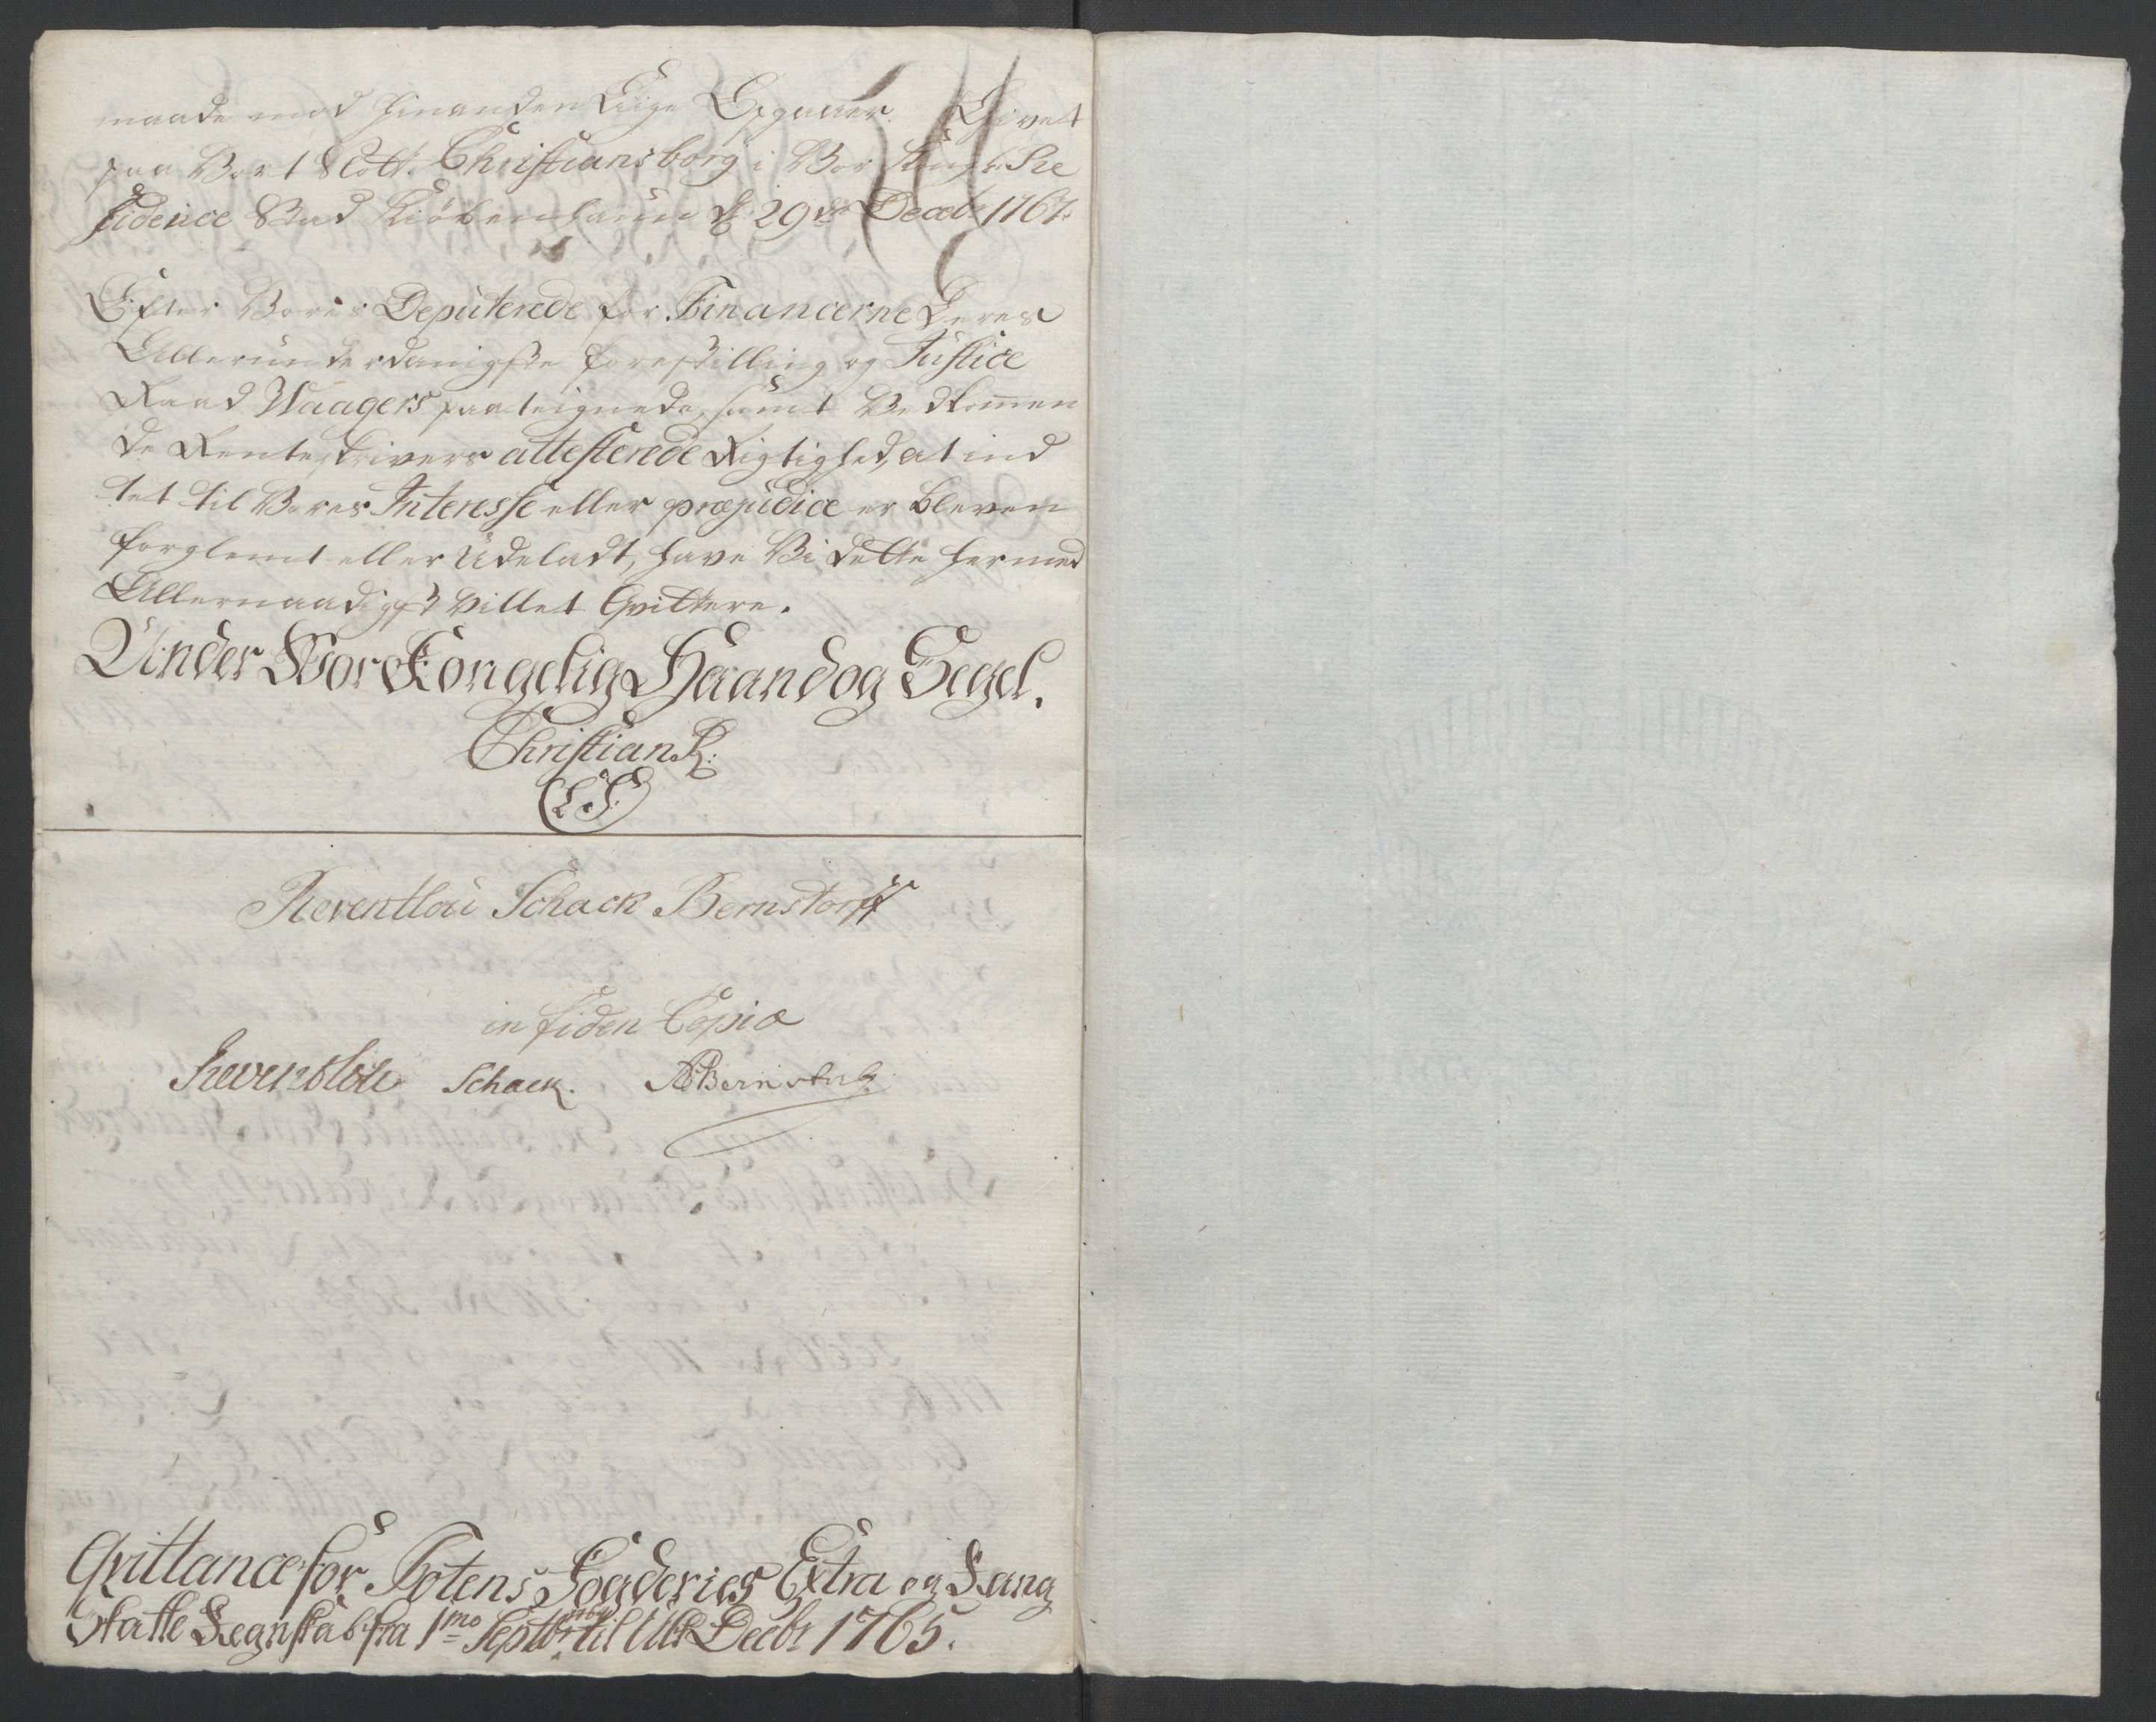 maade mod hinanden Liige Opgaaer. Givet
paa Vort Slott Christiansborg i Vor Kongl: Re
sidence Stad Kiöbenhaun d: 29de Decebr 1767.
Efter Vores Deputerede for Financerne Deres
Alleründerdanigste forestilling og Justice
Raad Waagers paateignede, samt Vedkom̄en
de Renteskrivers attesterede Rigtighed, at ind
tet til Vores Interesse eller præjudice er bleven
forglemt eller Udeladt, have Vi dette hermed
Allernaadigst Villet Qvittere.
Under Vor Kongelig Haand og Segel.
Christian R:
(L. S.)
Reventlou Schack Bernstorff
in fidem Copiæ
Reventlou Schack. APBernstorff
Qvittance for Totens Fogderies Extra og Rang
Skatte Regnskab fra 1mo Septbr til Ult: Decbr 1765.